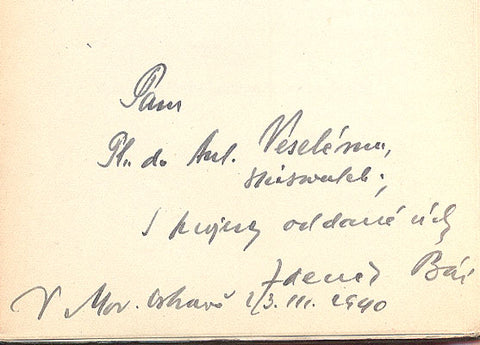 Panu
Ph. dr. Ant. Veselému,
s projevy oddané úcty
Zdeněk Bár
V Mor. Ostravě 2/3. III. 1940